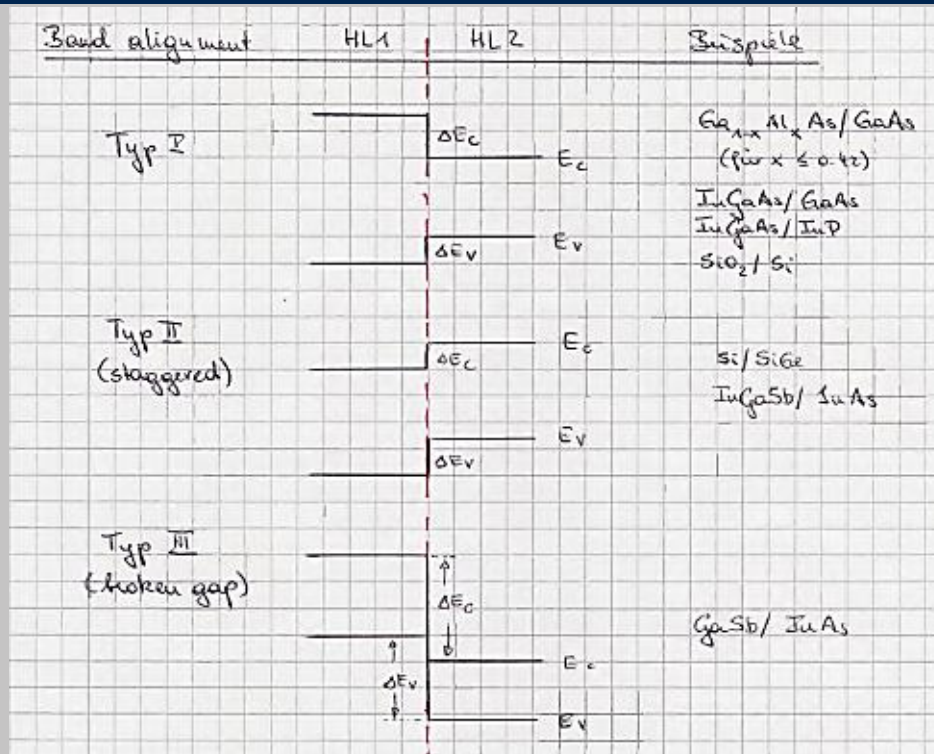 Band alignment HL1 HL2 Beispiele
Typ I
ΔEc
Ec
ΔEv
Ev
Ga1-x Alx As/GaAs
(für x ≤ 0.42)
InGaAs/GaAs
InGaAs/InP
SiO2/Si
Typ II
(staggered)
ΔEc
Ec
ΔEv
Ev
Si/SiGe
InGaSb/InAs
Typ III
(broken gap)
ΔEc
ΔEv
Ec
Ev
GaSb/InAs